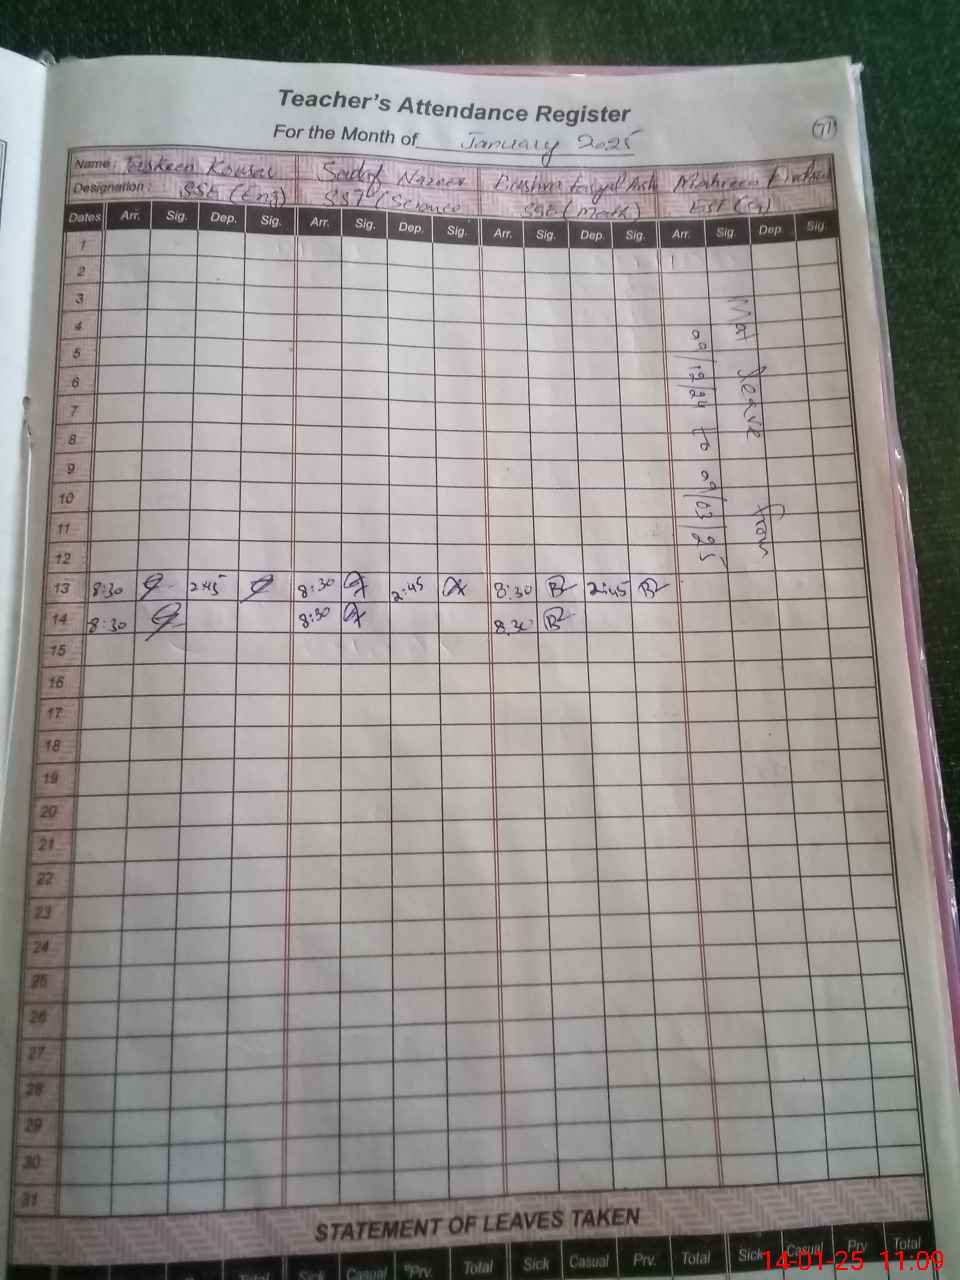 Teacher's Attendance Register
For the Month of January 2025
71
Name: Taskeen Kousar Sadaf Nazeer
Designation: SSE (Eng) SST (Science SSE (Math) EST
Dates Arr. Sig. Dep. Sig. Arr. Sig. Dep. Sig. Arr. Sig. Dep. Sig. Arr. Sig. Dep. Sig.
1
2
3
4
5
6
7
8
9
10
11
12
13 8:30 2:45 8:30 2:45 8:30 2:45
14 8:30 8:30 8.30
15
16
17
18
19
20
21
22
23
24
25
26
27
28
29
30
31
Mat leave from
09/12/24 to 09/03/25
STATEMENT OF LEAVES TAKEN
Total Sick Casual Prv. Total Sick Casual Prv. Total Sick Casual Prv Total
14-01-25 11:09